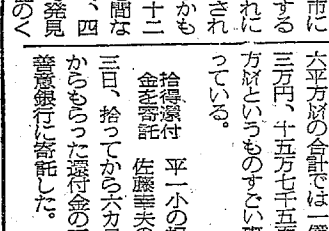 市に
する
れに
され
かも
十二
間な
、四
発見
のく
六平方㍍の合計では一億
三万円、十五万七千五
方㍍というものすごい
っている。
拾得還付
金を寄託
平一小の
佐藤幸夫の
三日、拾ってから六カ
からもらった還付金の
善意銀行に寄託した。